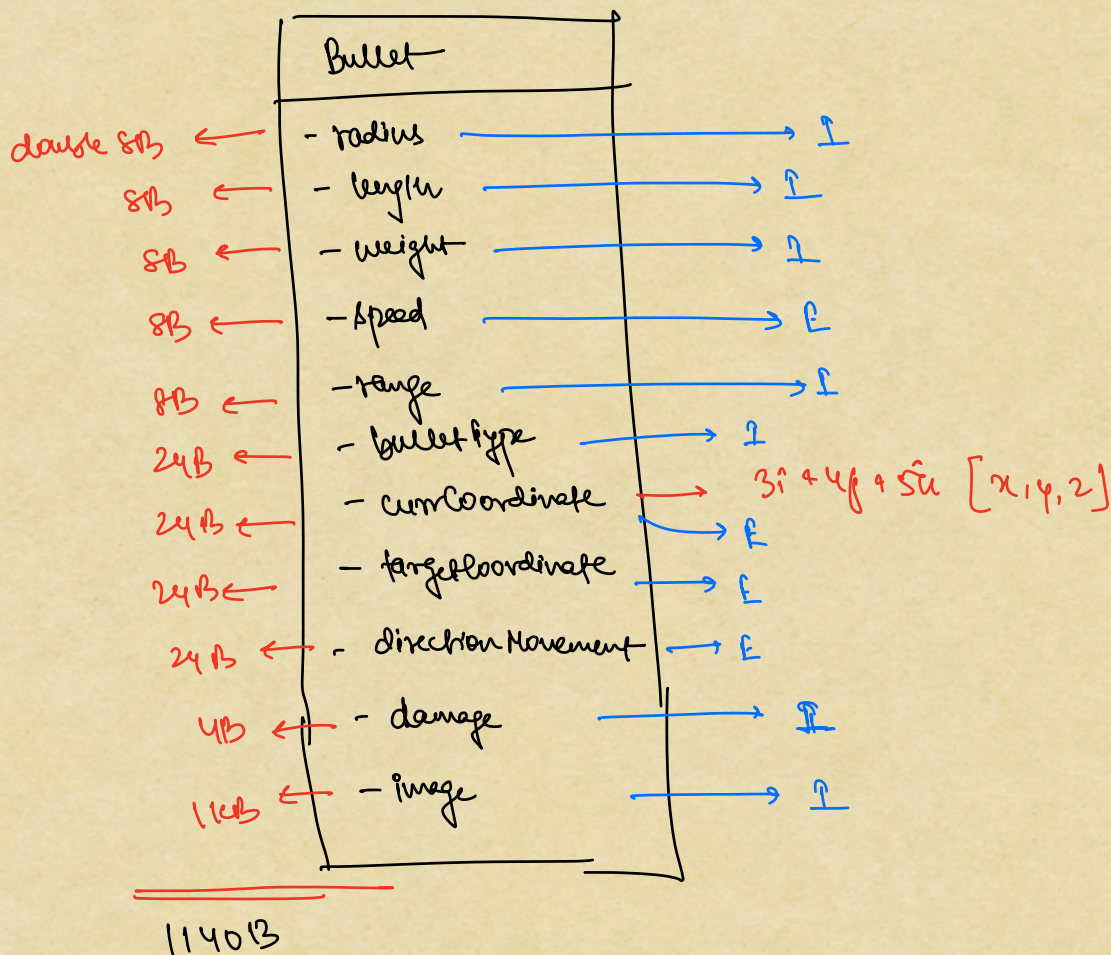 Bullet
double 8B ← - radius → I
8B ← - length → I
8B ← - weight → I
8B ← - speed → E
8B ← - range → I
24B ← - bulletType → I
24B ← - currCoordinate → 3î + 4ĵ + 5k̂ [x, y, z]
→ E
24B ← - targetCoordinate → E
24B ← - directionMovement → E
4B ← - damage → I
1KB ← - image → I
1140B